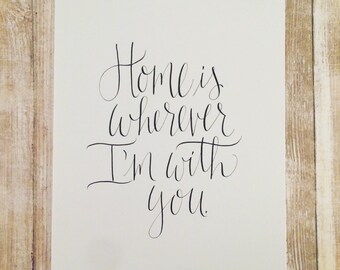 Home is
wherever
I'm with
you.